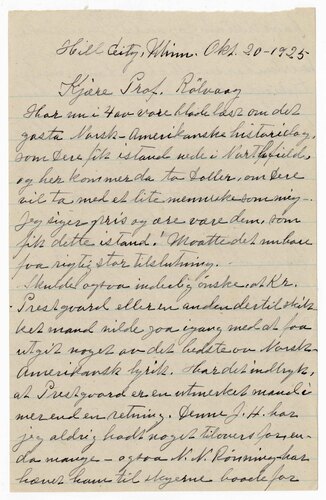 Hill City, Minn. Okt. 20-1925
Kjære Prof. Rölvaag
Har nu i 4 av vore blade læst om det
gode Norsk-Amerikanske historielag,
som Dere fik istand nede i Northfield,
og her kommer da to Doller, om Dere
vil ta med et lite menneske som mig.
Jeg siger pris og ære være dem, som
fik dette istand! Maatte det nu bare
faa rigtig stor tilslutning.
Skulde ogsaa inderlig ønske, at Kr.
Prestgard eller en anden dertil skik
ket mand vilde gaa igang med at faa
utgit noget av det bedste av Norsk-
Amerikansk lyrik. Har det indtryk,
at Prestgard er en utmerket mand i
mer end en retning. Denne J. H. har
jeg aldrig hadt noget tilovers for, en-
da mange - ogsaa N. N. Rønning har
hævet ham til skyerne baade for